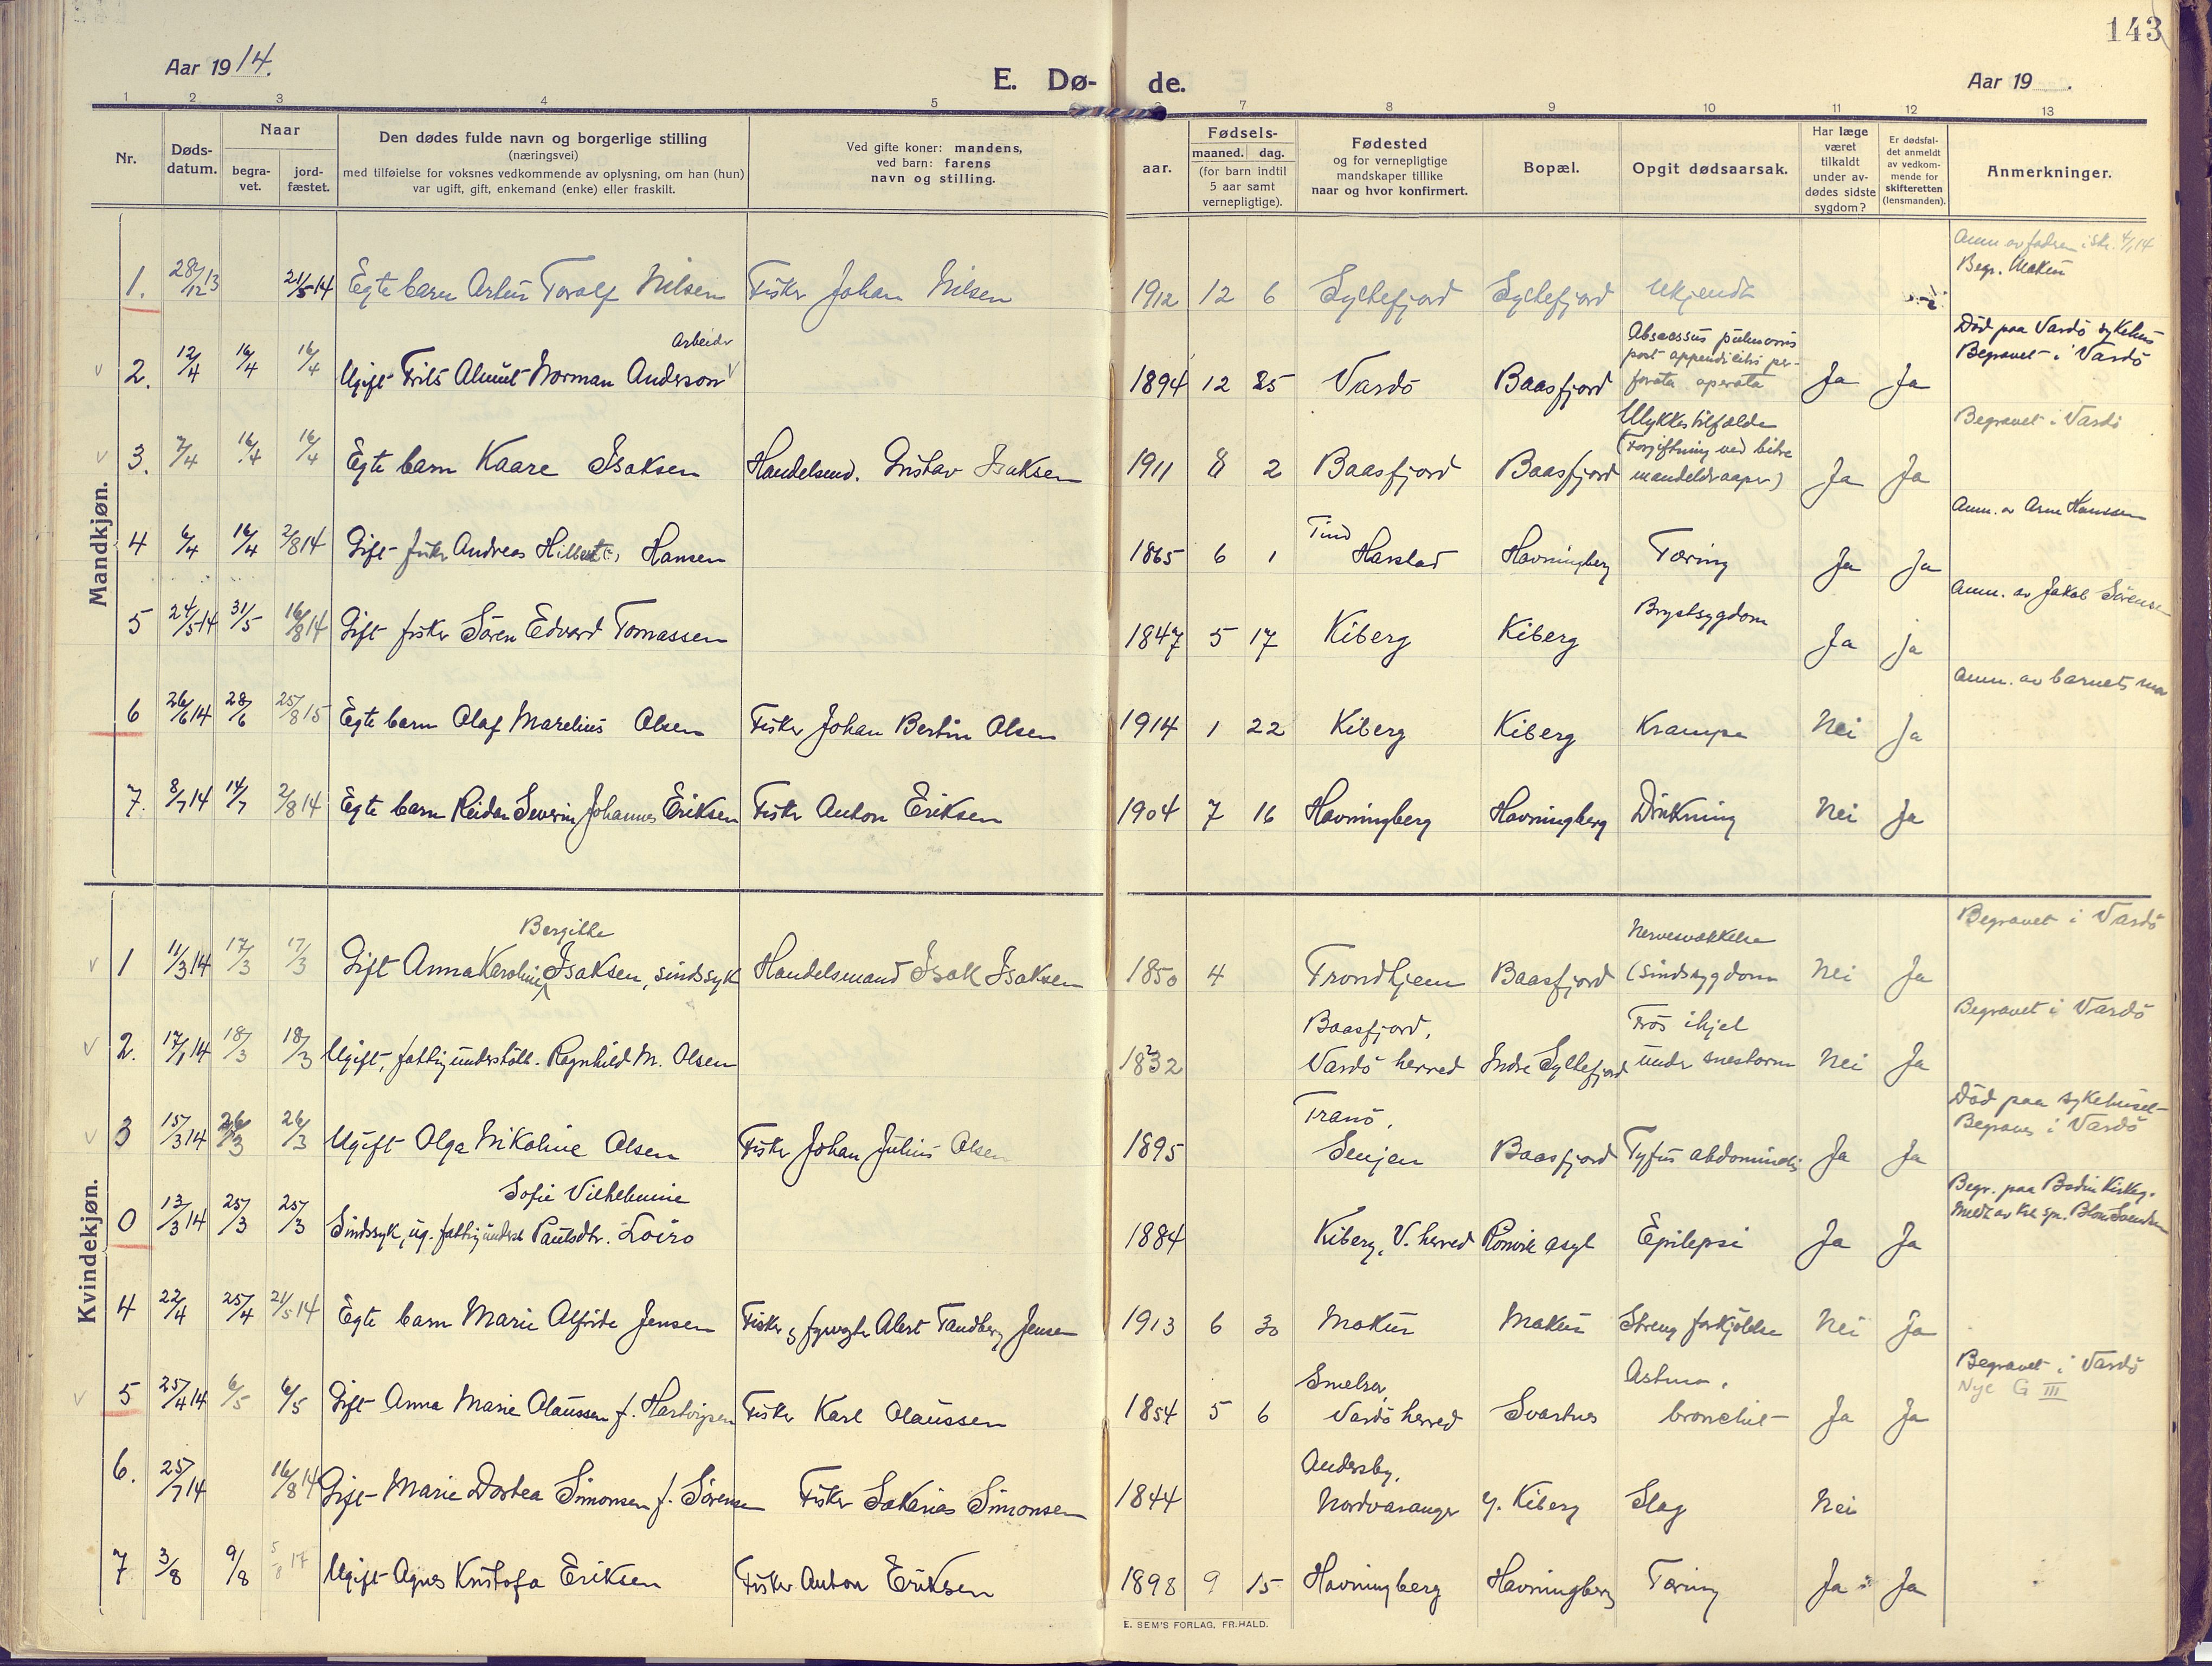 143
Aar 1914.
E. Dø- de.
Aar 19
1 2 3 4 5 6 7 8 9 10 11 12 13
Nr.
Døds-
datum.
Naar
begra-
vet.
jord-
fæstet.
Den dødes fulde navn og borgerlige stilling
(næringsvei)
med tilføielse for voksnes vedkommende av oplysning, om han (hun)
var ugift, gift, enkemand (enke) eller fraskilt.
Ved gifte koner: mandens,
ved barn: farens
navn og stilling.
Fødsels-
aar.
maaned. dag.
(for barn indtil
5 aar samt
vernepligtige).
Fødested
og for vernepligtige
mandskaper tillike
naar og hvor konfirmert.
Bopæl.
Opgit dødsaarsak.
Har læge
været
tilkaldt
under av-
dødes sidste
sygdom?
Er dødsfal-
det anmeldt
av vedkom-
mende for
skifteretten
(lensmanden).
Anmerkninger.
Mandkjøn.
Anm av fadren i skr. 4/1 14
Begr. Makur
1. 28/12 13 21/5 14 Egte barn Artur Toralf Nilsen Fisker Johan Nilsen 1912 12 6 Syltefjord Syltefjord Ukjendt
Arbeider
Absaessus pulmonis
post appendicitis per-
forata operata
Död paa Vardö sykehus
Begravet i Vardö
2. 12/4 16/4 16/4 Ugift Frits Almut Norman Anderson 1894 12 25 Vardö Baasfjord Ja Ja
Ulykkestilfælde
(Forgiftning ved bitre
mandeldraaper)
Begravet i Vardö
3. 7/4 16/4 16/4 Egte barn Kaare Isaksen Handelsmd. Gustav Isaksen 1911 8 2 Baasfjord Baasfjord Ja Ja
Anm. av Arne Hanssen
Tind
4 6/4 16/4 2/8 14 Gift fisker Andreas Hilbert Hansen 1865 6 1 Harstad Havningberg Tæring Ja Ja
Anm. av Jakob Sörensen
5 24/5 14 31/5 16/8 14 Gift fisker Sören Edvard Tomassen 1847 5 17 Kiberg Kiberg Brystsygdom Ja Ja
Anm. av barnets mor
6 26/6 14 28/6 25/8 15 Egte barn Olaf Marelius Olsen Fisker Johan Bertin Olsen 1914 1 22 Kiberg Kiberg Krampe Nei Ja
7. 8/7 14 14/7 2/8 14 Egte barn Reidar Severin Johannes Eriksen Fisker Anton Eriksen 1904 7 16 Havningberg Havningberg Drukning Nei Ja
Kvindekjøn.
Bergitte
Nervesvækkelse
(Sindssygdom
Begravet i Vardö
1 11/3 14 17/3 17/3 Gift Anna Karoline Isaksen, sindssyk Handelsmand Isak Isaksen 1850 4 Trondhjem Baasfjord Nei Ja
Baasfjord,
Vardö herred
Frös ihjel
under snestorm
Begravet i Vardö
2. 17/1 14 18/3 18/3 Ugift, fattigunderstött. Ragnhild M. Olsen 1832 Indre Syltefjord Nei Ja
Tranö,
Senjen
Död paa sykehuset
Begraves i Vardö
3 15/3 14 26/3 26/3 Ugift Olga Nikoline Olsen Fisker Johan Julius Olsen 1895 Baasfjord Tyfus abdominalis Ja Ja
Sofie Vilhelmine
Begr. paa Bodin Kirkeg.
0 13/3 14 25/3 25/3 Sindssyk, ug. fattigunderst Paulsdtr. Loiro 1884 Kiberg, V. herred Rönvik asyl Epilepsi Ja Ja
4 22/4 25/4 21/5 14 Egte barn Marie Alfride Jensen Fisker og fyrvogter Albert Tandberg Jensen 1913 6 30 Makur Makur Streng forkjölelse Nei Ja
Smelror,
Vardö herred
Astma,
bronchit
Begravet i Vardö
Nye G III
5 25/4 14 6/5 6/5 Gift Anna Marie Olaussen f. Hartvigsen Fisker Karl Olaussen 1854 5 6 Svartnes Ja Ja
Andersby,
Nordvaranger
6. 25/7 14 16/8 14 Gift Marie Dortea Simonsen f. Sörensen Fisker Sakarias Simonsen 1844 y. Kiberg Slag Nei
7 3/8 9/8 5/8 17 Ugift Agnes Kristofa Eriksen Fisker Anton Eriksen 1898 9 15 Havningberg Havningberg Tæring Ja Ja
E. SEM'S FORLAG, FR.HALD.